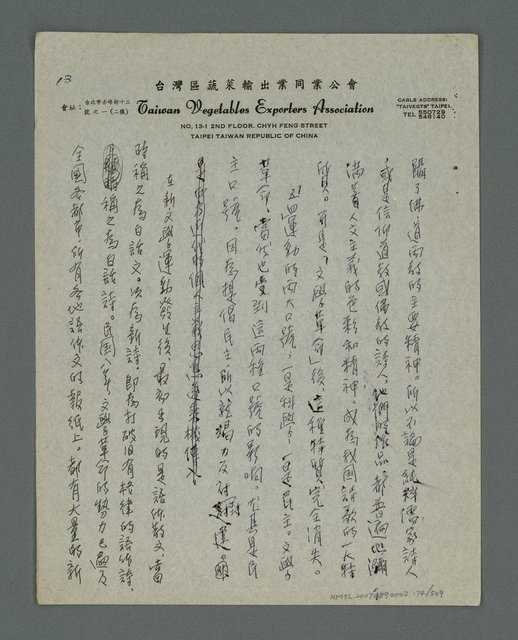 13
台灣區蔬菜輸出業同業公會
會址：台北市赤峰街十三號之一（二樓）
Taiwan Vegetables Exporters Association
NO, 13-1 2ND FLOOR. CHYH FENG STREET
TAIPEI TAIWAN REPUBLIC OF CHINA
CABLE ADDRESS:
"TAIVEGTS" TAIPEI.
TEL 550729
548140
躡了佛、道兩教的主要精神。所以不論是純粹儒家詩人
，或是信仰道教或佛教的詩人，他們的作品，都普遍地瀰
滿着人文主義的色彩和精神，成為我國詩歌的一大特
質。可是「文學革命」後，這種特質完全消失。
五四運動的兩大口號，一是科學，一是民主。文學
革命，當然也受到這兩種口號的影响。尤其是民
主口號。因為提倡民主，所以號竭力反對
在新文學運動發生後，最初出現的是語体散文，當
時稱之為白話文。次為新詩，即為打破旧有格律的語体詩，
稱之為白話詩。民国八年，文學革命的勢力已遍及
全国各都市，所有各地語体文的報紙上，都有大量的新
NMTL20070590002_174/509